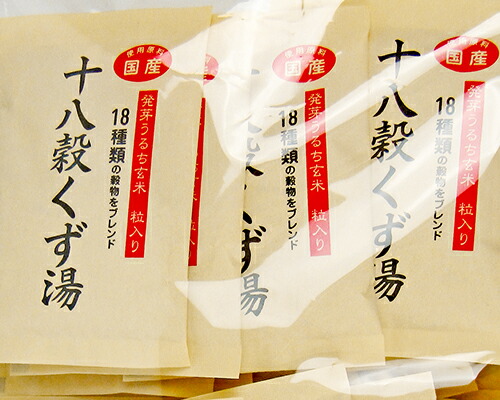 使用原料
国産
発芽うるち玄米 粒入り
18種類の穀物をブレンド
十八穀くず湯
使用原料
国産
発芽うるち玄米 粒入り
18種類の穀物をブレンド
十八穀くず湯
使用原料
国産
発芽うるち玄米 粒入り
18種類の穀物をブレンド
十八穀くず湯